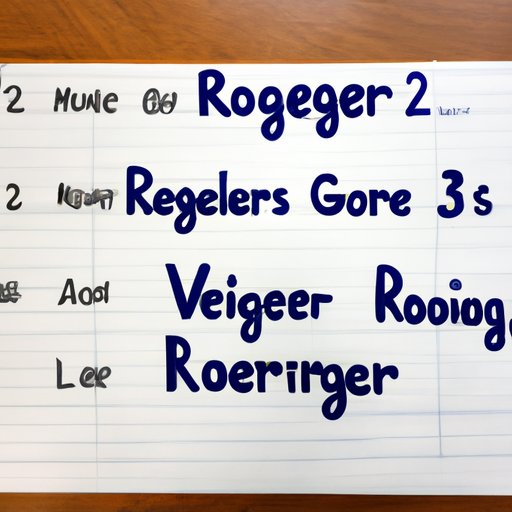 2 Mune Rogeger 2
2 Regelers Gore 3s
Aod Veigeer Rooiog
Lee Roerirger